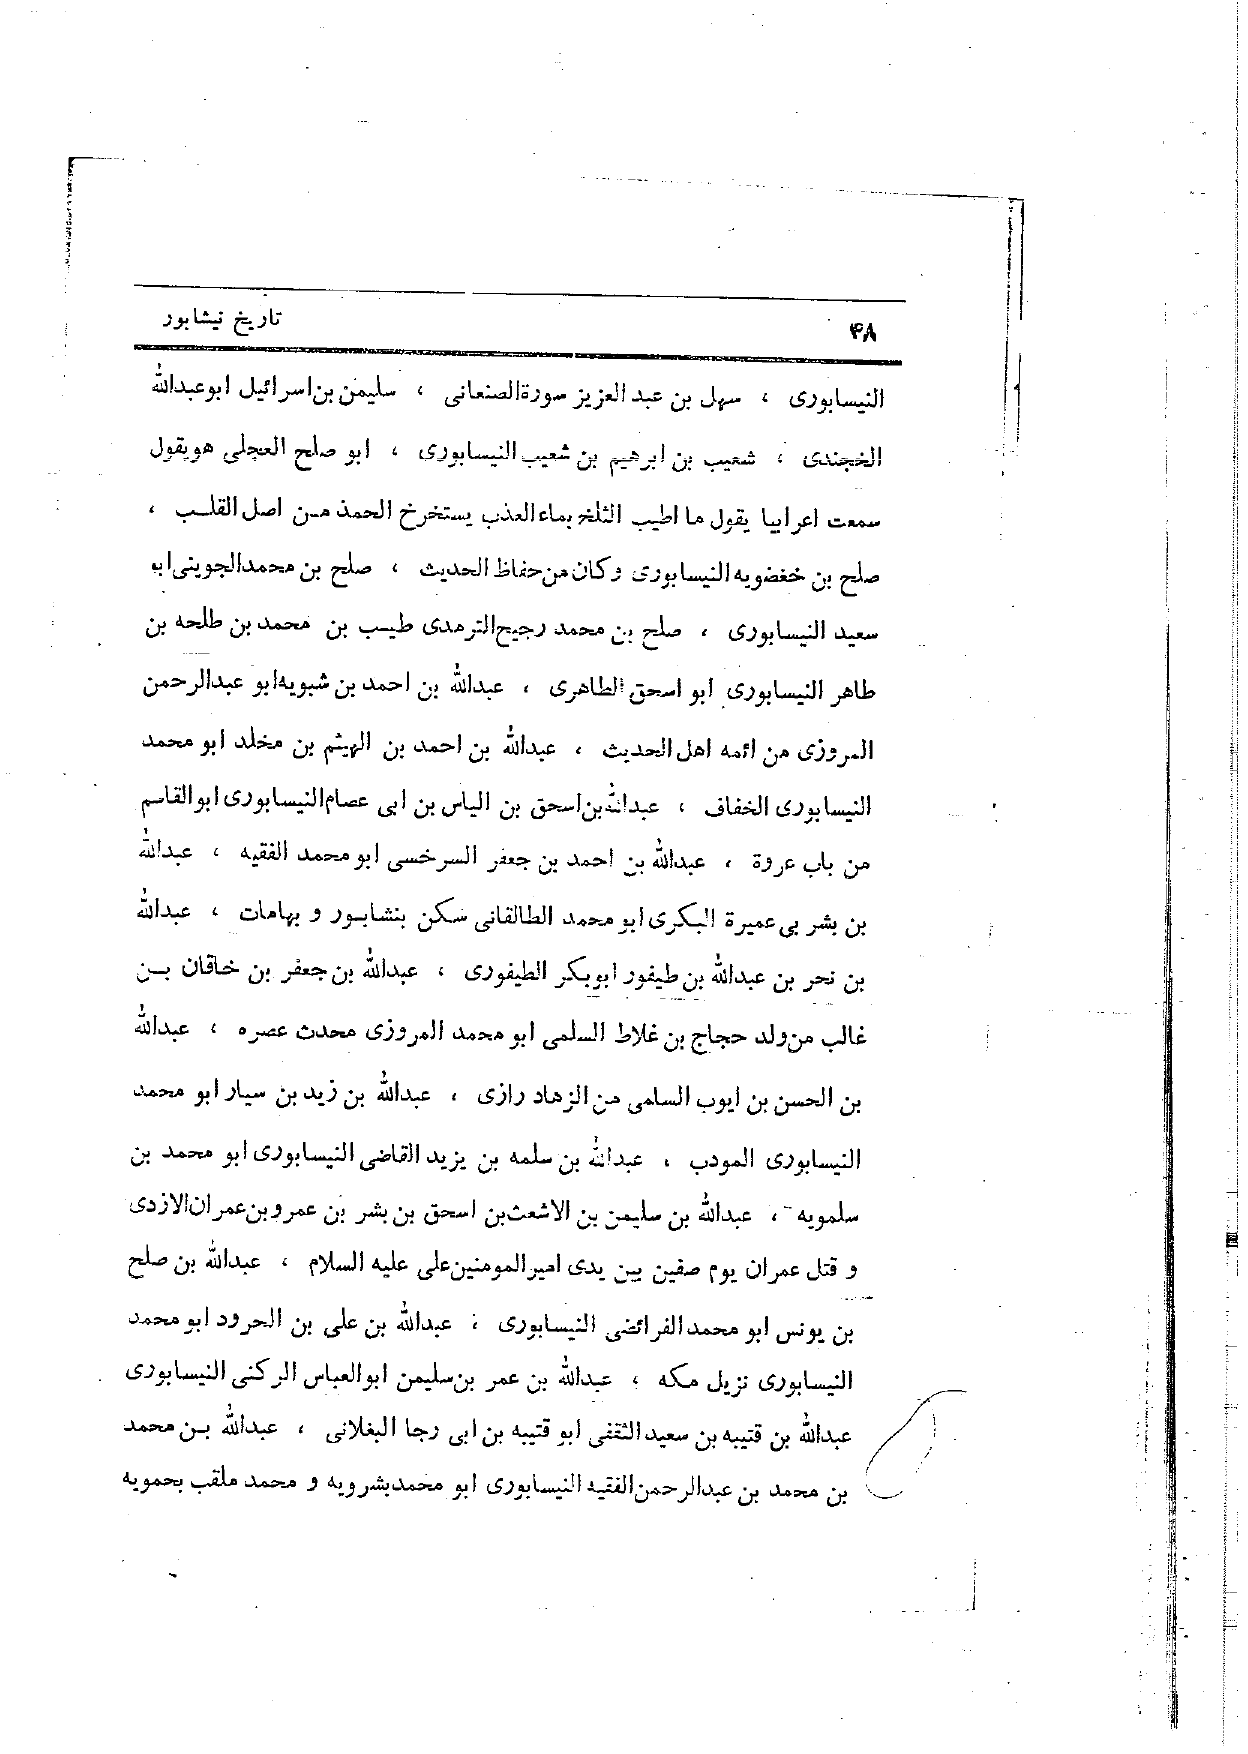 ۴۸ تاریخ نیشابور
النیسابوری ، سهل بن عبد العزیز سورةالصنعانی ، سلیمن بن اسرائیل ابوعبدالله
الخجندی ، شعیب بن ابرهیم بن شعیب النیسابوری ، ابو صلح العجلی هویقول
سمعت اعرابیا یقول ما اطیب الثلخ بماء العذب یستخرخ الحمذ مـن اصل القلب ،
صلح بن خغضویه النیسابوری وکان من حفاظ الحدیث ، صلح بن محمدالجوینی ابو
سعید النیسابوری ، صلح بن محمد رجیح الترمدی طیـب بن محمد بن طلحه بن
طاهر النیسابوری ابو اسحق الطاهری ، عبدالله بن احمد بن شبویه ابو عبدالرحمن
المروزی من ائمه اهل الحدیث ، عبدالله بن احمد بن الهیثم بن مخلد ابو محمد
النیسابوری الخفاف ، عبدالله بن اسحق بن الیاس بن ابی عصام النیسابوری ابوالقاسم
من باب عروة ، عبدالله بن احمد بن جعفر السرخسی ابو محمد الفقیه ، عبدالله
بن بشر بی عمیرة البکری ابو محمد الطالقانی سکن بنشابـور و بهامات ، عبدالله
بن نحر بن عبدالله بن طیفور ابوبکر الطیفوری ، عبدالله بن جعفر بن خاقان بـن
غالب من ولد حجاج بن غلاط السلمی ابو محمد المروزی محدث عصره ، عبدالله
بن الحسن بن ایوب السلمی من الزهاد رازی ، عبدالله بن زید بن سیار ابو محمد
النیسابوری المودب ، عبدالله بن سلمه بن یزید القاضی النیسابوری ابو محمد بن
سلمویه ، عبدالله بن سلیمن بن الاشعث بن اسحق بن بشر بن عمرو بن عمران الازدی
و قتل عمران یوم صفین بین یدی امیرالمومنین علی علیه السلام ، عبدالله بن صلح
بن یونس ابو محمدالفرائضی النیسابوری ، عبدالله بن علی بن الجرود ابو محمد
النیسابوری نزیل مکه ، عبدالله بن عمر بن سلیمن ابوالعباس الرکنی النیسابوری
عبدالله بن قتیبه بن سعید الثقفی ابو قتیبه بن ابی رجا البغلانی ، عبدالله بـن محمد
بن محمد بن عبدالرحمن الفقیه النیسابوری ابو محمدبشرویه و محمد ملقب بحمویه